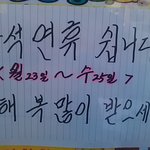 석 연휴 쉽니다
(월23일 ~ 수25일)
해 복 많이 받으세